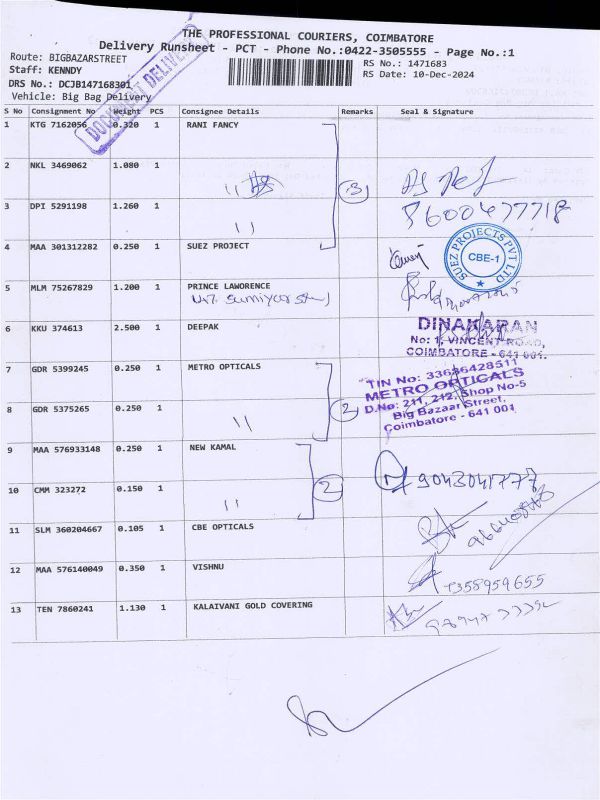 THE PROFESSIONAL COURIERS, COIMBATORE
Delivery Runsheet - PCT - Phone No.:0422-3505555 - Page No.:1
Route: BIGBAZARSTREET
RS No.: 1471683
Staff: KENNDY
RS Date: 10-Dec-2024
DRS No.: DCJB147168301
Vehicle: Big Bag Delivery
DOCUMENT DELIVERY
S No Consignment No Weight PCS Consignee Details Remarks Seal & Signature
1 KTG 7162056 0.320 1 RANI FANCY
2 NKL 3469062 1.080 1 11
3
3 DPI 5291198 1.260 1 11
8600477718
4 MAA 301312282 0.250 1 SUEZ PROJECT
SUEZ PROJECTS PVT LTD
CBE-1
5 MLM 75267829 1.200 1 PRINCE LAWORENCE
6 KKU 374613 2.500 1 DEEPAK
DINAKARAN
No: 1, VINCENT ROAD,
COIMBATORE - 641 001.
7 GDR 5399245 0.250 1 METRO OPTICALS
TIN No: 33636428511
METRO OPTICALS
D.No: 211, 212, Shop No-5
Big Bazaar Street,
Coimbatore - 641 001
8 GDR 5375265 0.250 1 11
2
9 MAA 576933148 0.250 1 NEW KAMAL
9043041777
10 CMM 323272 0.150 1 11
2
11 SLM 360204667 0.105 1 CBE OPTICALS
12 MAA 576140049 0.350 1 VISHNU
7358959655
13 TEN 7860241 1.130 1 KALAIVANI GOLD COVERING